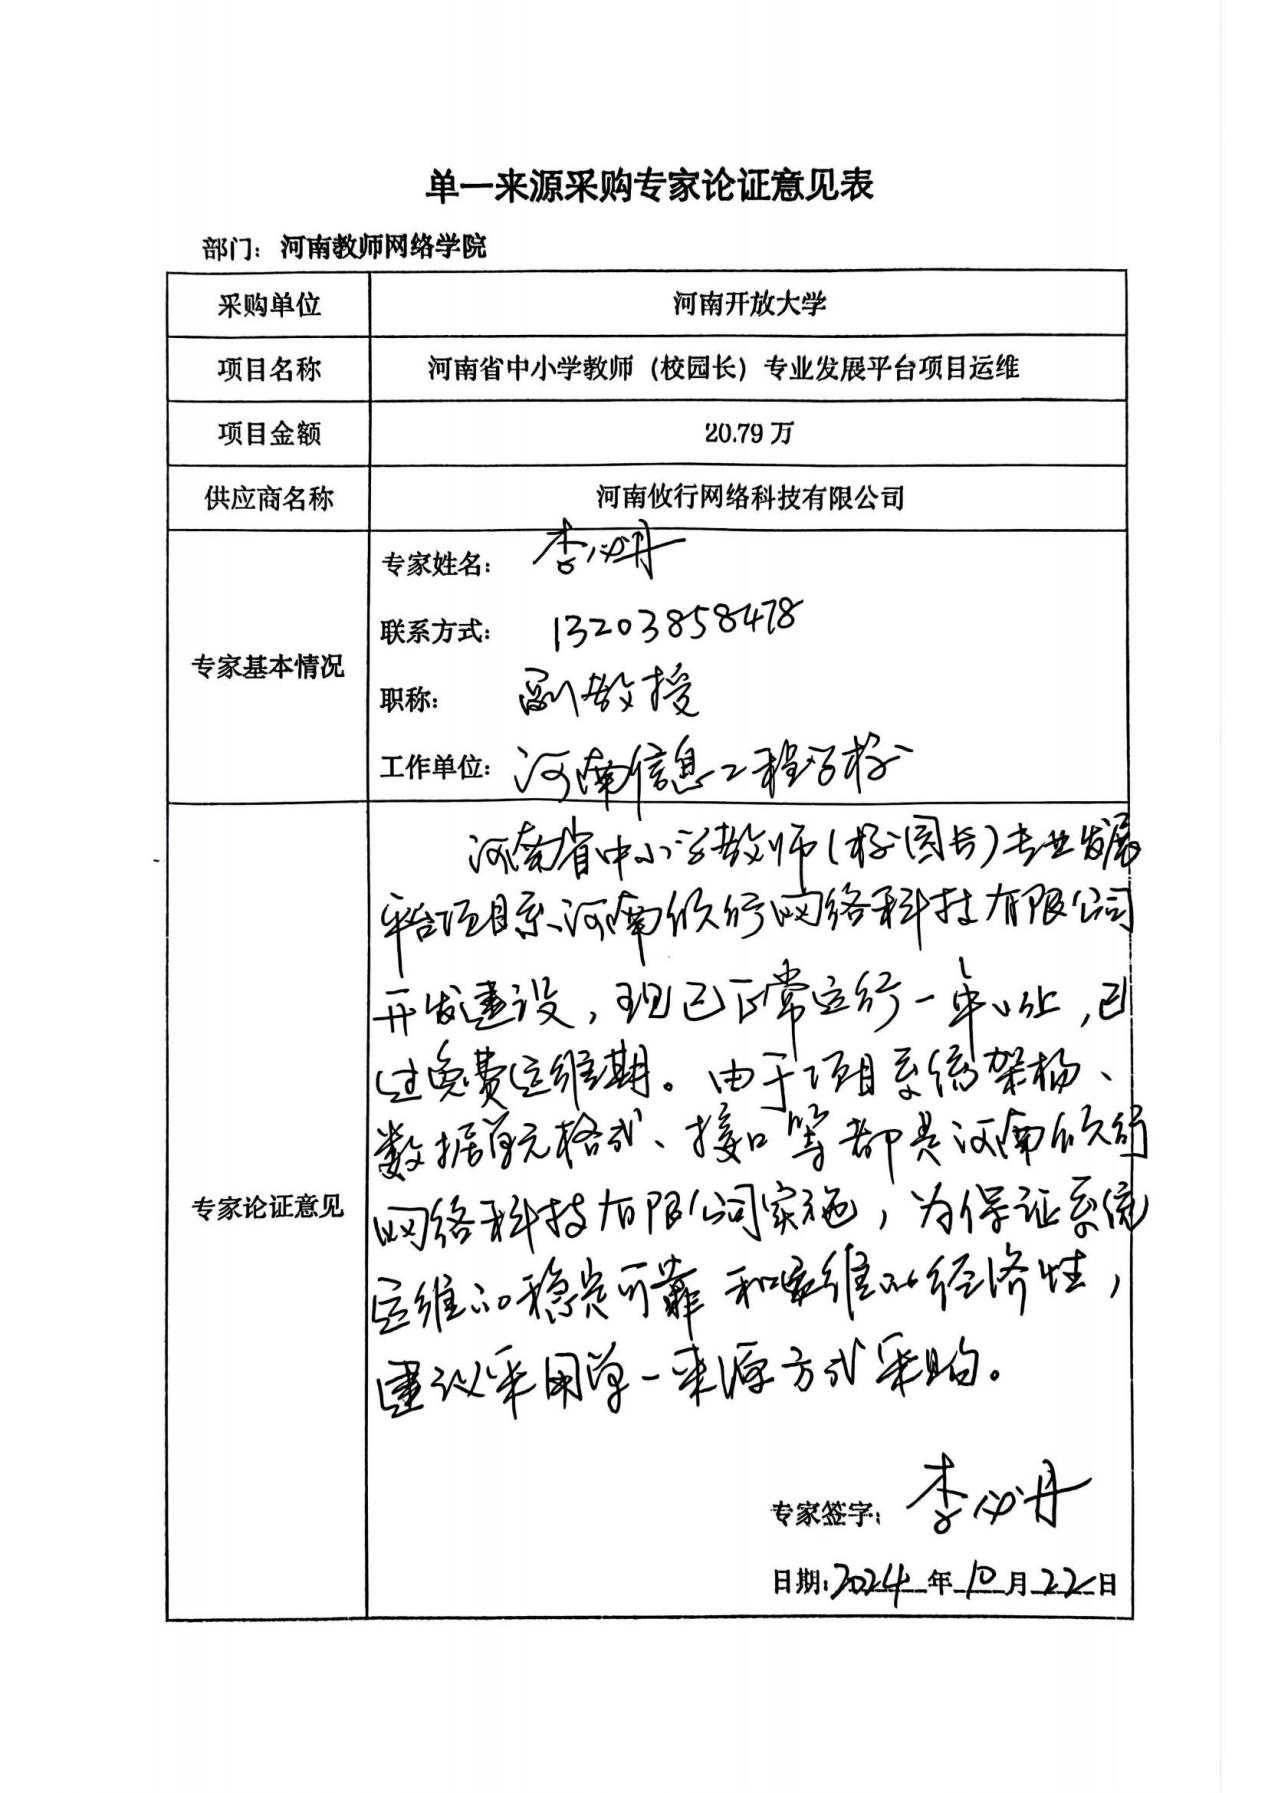 单一来源采购专家论证意见表
部门：河南教师网络学院
采购单位 河南开放大学
项目名称 河南省中小学教师（校园长）专业发展平台项目运维
项目金额 20.79 万
供应商名称 河南攸行网络科技有限公司
专家基本情况
专家姓名： 李必丹
联系方式： 13203858478
职称： 副教授
工作单位： 河南信息工程学校
专家论证意见
河南省中小学教师（校园长）专业发展
平台项目系河南攸行网络科技有限公司
开发建设，现已正常运行一年以上，已
过免费运维期。由于项目系统架构、
数据单元格式、接口等都是河南攸行
网络科技有限公司实施，为保证系统
运维的稳定可靠和运维的经济性，
建议采用单一来源方式采购。
专家签字： 李必丹
日期：2024年10月22日